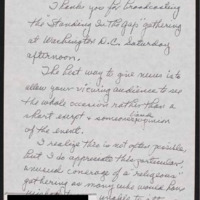 Thank you for broadcasting
the Standing in the Gap gathering
at Washington D.C. Saturday
afternoon.
The best way to give news is to
allow your viewing audience to see
the whole occasion rather than a
short script & someones opinion
of the event.
I realize this is not often possible,
but I do appreciate this particular,
unusual coverage of a "religious"
gathering so many who would have
unable to